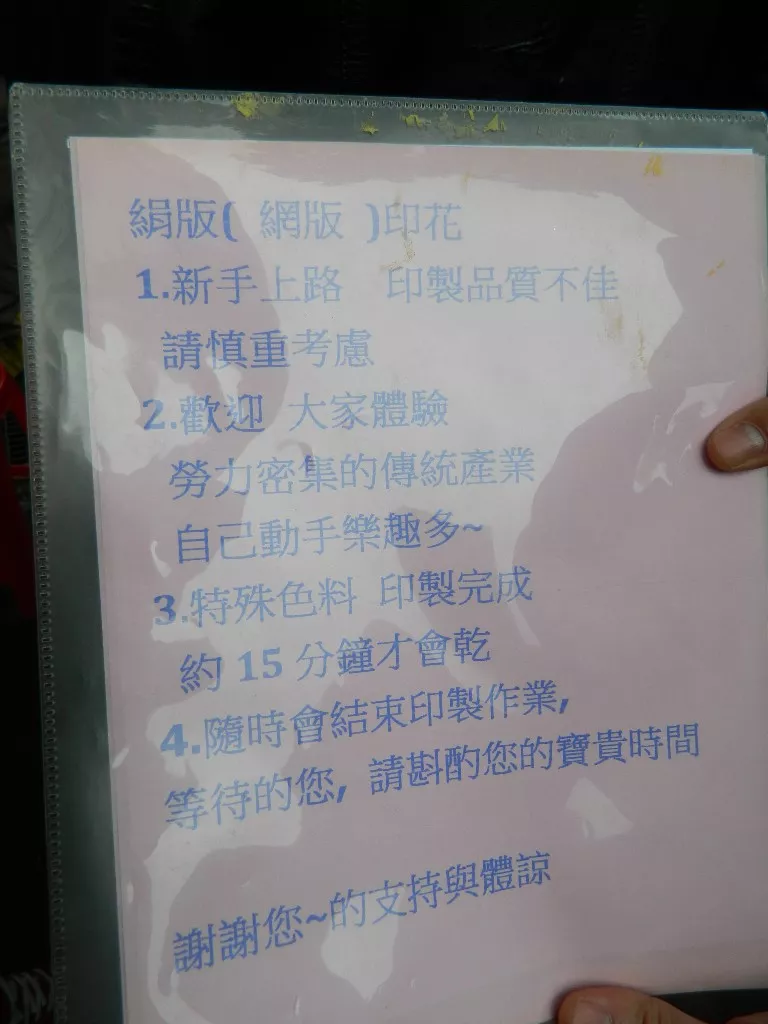 絹版( 網版 )印花
1.新手上路 印製品質不佳
請慎重考慮
2.歡迎 大家體驗
勞力密集的傳統產業
自己動手樂趣多~
3.特殊色料 印製完成
約 15 分鐘才會乾
4.隨時會結束印製作業,
等待的您, 請斟酌您的寶貴時間
謝謝您~的支持與體諒